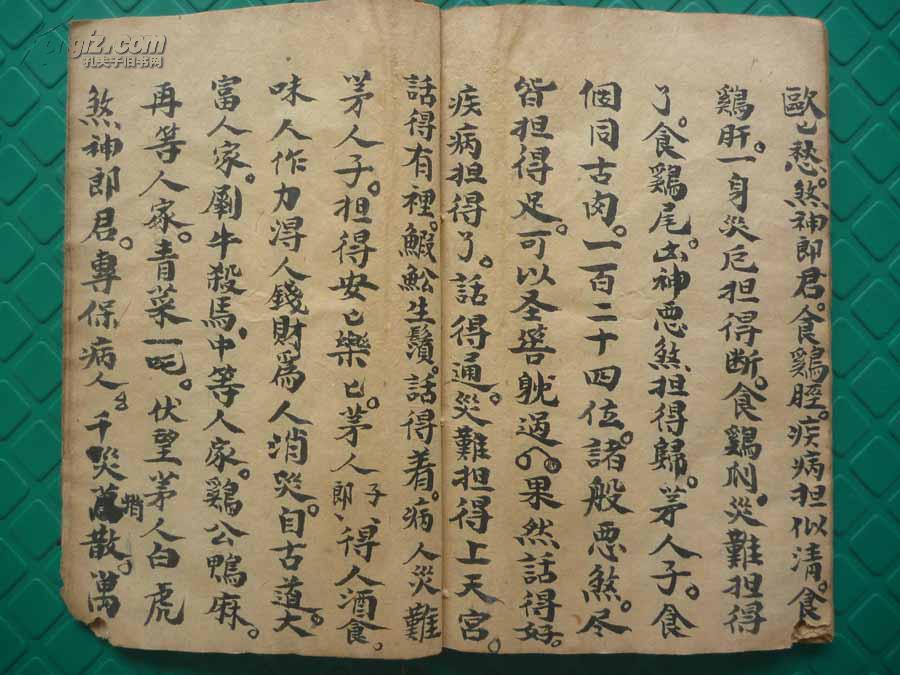 歐〻愁。煞神郎君。食鷄脛。疾病担似清。食
鷄肝。一身災厄担得断。食鷄刎。災難担得
了。食鷄尾。凶神悪煞担得歸。茅人子。食
個同古肉。一百二十四位。諸般悪煞。尽
皆担得足。可以圣筶
過
果然話得好。
疾病担得了。話得通。災難担得上天宮。
話得有裡。鰕蚣生鬚。話得着。病人災難
茅人子。担得安〻樂〻。茅人子郎、得人酒食
味人作力淂人錢財為人消災。自古道。大
富人家。劏牛殺馬。中等人家。鷄公鴨麻。
再等人家。青菜一
。伏望茅人白虎
煞神郎君。專保病人
千災萬
散。萬
孔夫子旧书网